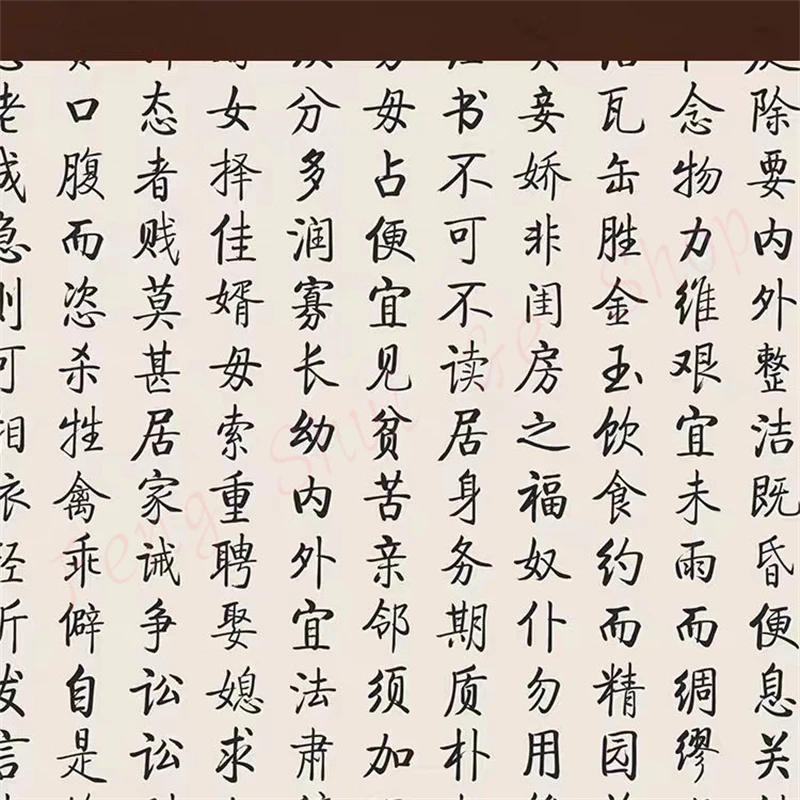 除要内外整洁既昏便息关
念物力维艰宜未雨而绸缪
瓦缶胜金玉饮食约而精园
妾娇非闺房之福奴仆勿用
书不可不读居身务期质朴
毋占便宜见贫苦亲邻须加
分多润寡长幼内外宜法肃
女择佳婿毋索重聘娶媳求
态者贱莫甚居家诫争讼讼
口腹而恣杀牲禽乖僻自是
老成急则可相依轻听发言
Feng Shui Shop